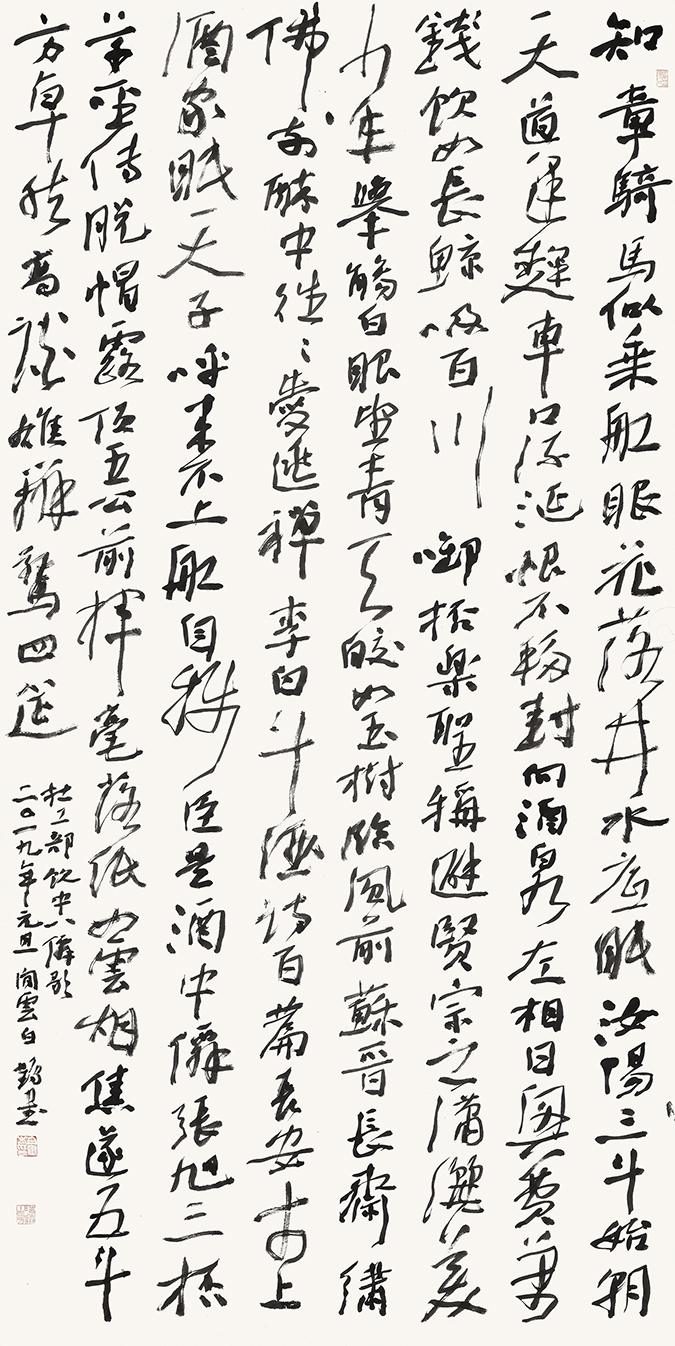 知章騎馬似乘船眼花落井水底眠汝陽三斗始朝
天道逢麴車口流涎恨不移封向酒泉左相日興費萬
錢飲如長鯨吸百川啣杯樂聖稱避賢宗之瀟灑美
少年舉觴白眼望青天皎如玉樹臨風前蘇晉長齋繡
佛前醉中往〻愛逃禪李白斗酒詩百篇長安市上
酒家眠天子呼來不上船自稱臣是酒中僊張旭三杯
草聖傳脫帽露頂王公前揮毫落紙如雲烟焦遂五斗
方卓然高談雄辯驚四筵
杜工部飲中八僊歌
二〇一九年元旦閒雲白鶴書